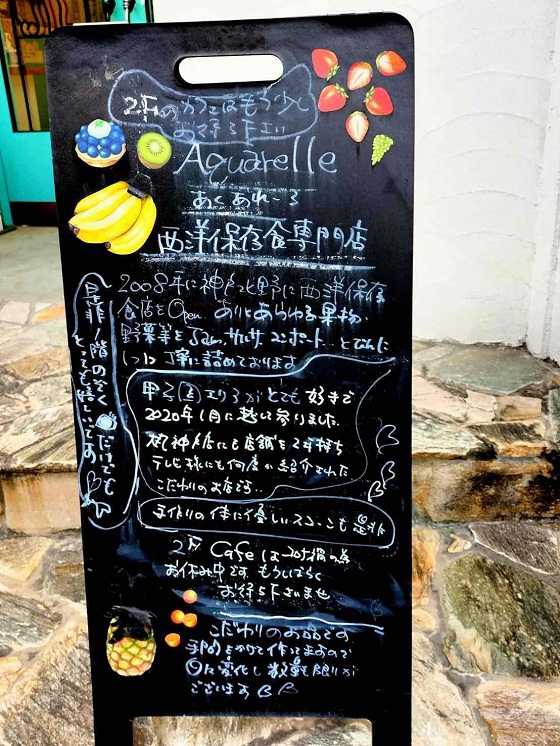 2Fのカフェはもう少し
お待ち下さい
Aquarelle
あくあれーる
西洋保存食専門店
2008年に神戸北野に西洋保存
食店をOpen ありとあらゆる果物、
野菜等を コンポート…とびんに
1つ1つ丁寧に詰めております
甲子園エリアがとても好きで
2020年1月に越して参りました。
阪神 店にも店舗を 持ち
テレビ様にも何度か紹介された
こだわりのお店です。
手作りの体に優しいスコーンも是非
2F Cafeはコロナ禍の為
お休み中です もうしばらく
お待ち下さいませ
こだわりのお品です
手間をかけて作ってますので
日に変化し数量限りが
ございます
是非1階のぞく
だけでも
とっても嬉しいです